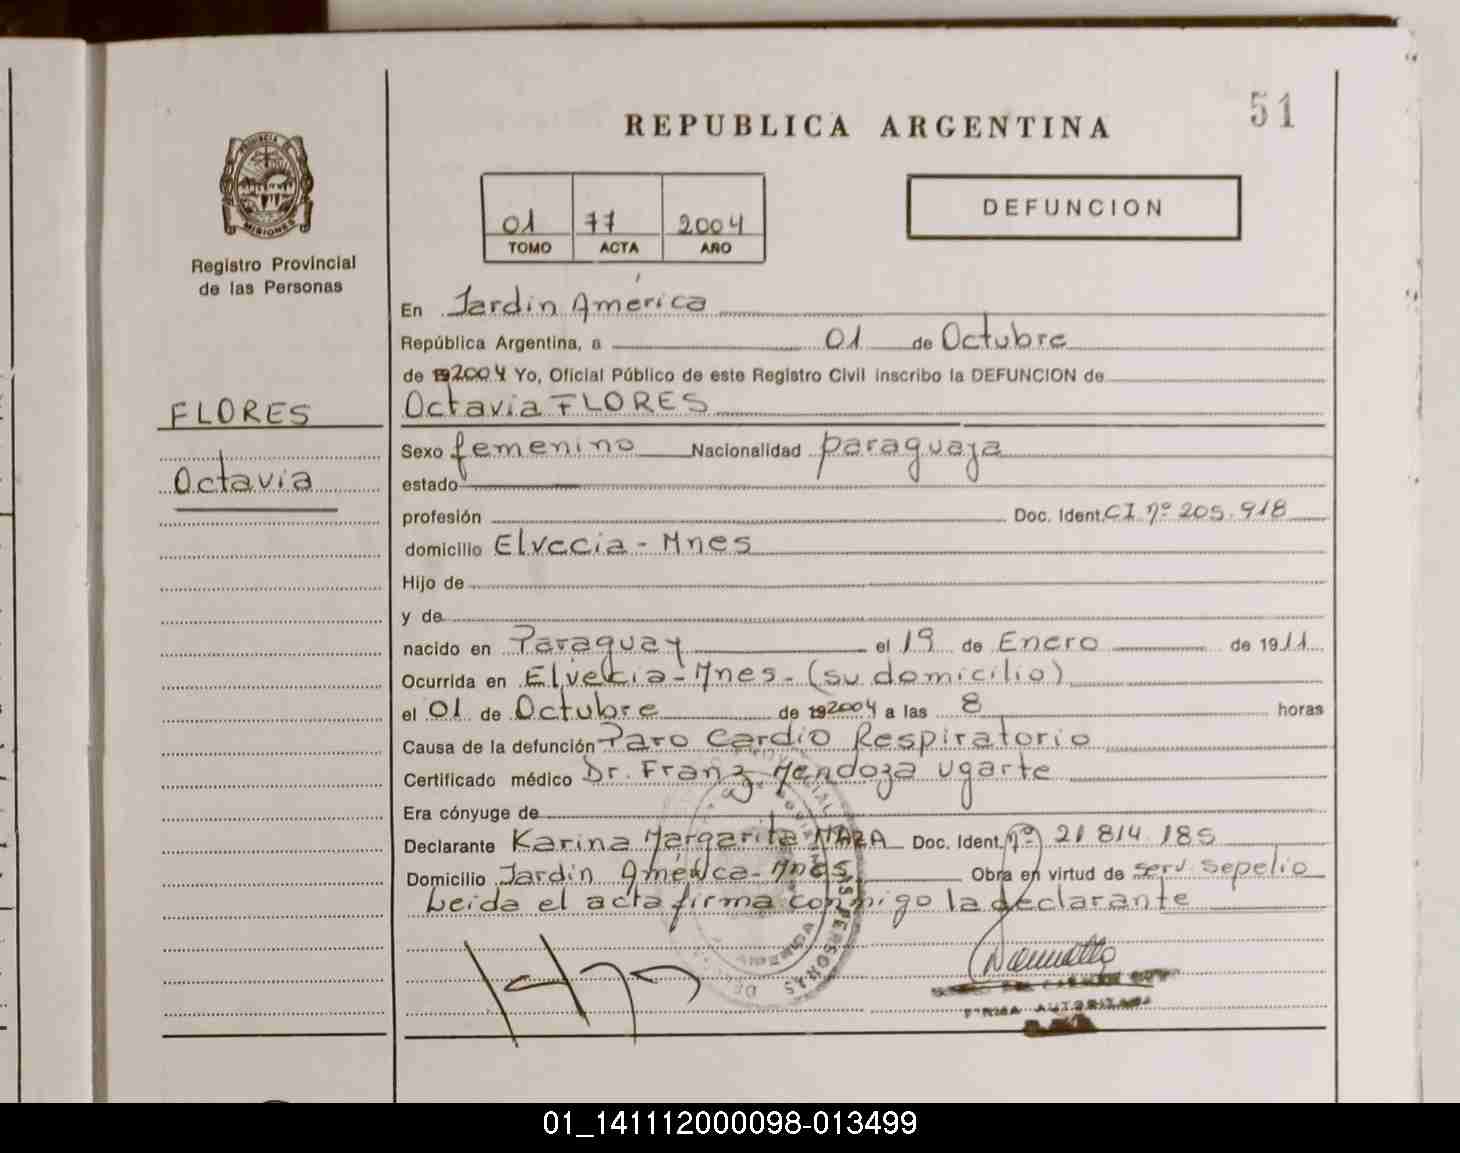 51
REPUBLICA ARGENTINA
PROVINCIA DE
MISIONES
Registro Provincial
de las Personas
01 77 2004
TOMO ACTA AÑO
DEFUNCION
En Jardin América
República Argentina, a 01 de Octubre
de 192004 Yo, Oficial Público de este Registro Civil inscribo la DEFUNCION de
FLORES
Octavia
Octavia FLORES
Sexo femenino Nacionalidad paraguaya
estado
profesión Doc. Ident. CI nº 205.918
domicilio Elvecia - Mnes
Hijo de
y de
nacido en Paraguay el 19 de Enero de 1911
Ocurrida en Elvecia - Mnes - (su domicilio)
el 01 de Octubre de 192004 a las 8 horas
Causa de la defunción Paro Cardio Respiratorio
Certificado médico Dr. Franz Mendoza Ugarte
Era cónyuge de
Declarante Karina Margarita Doc. Ident. nº 21.814.185
Domicilio Jardin América - Mnes Obra en virtud de serv. sepelio
Leida el acta firma conmigo la declarante
FIRMA AUTORIZADA
01_141112000098-013499